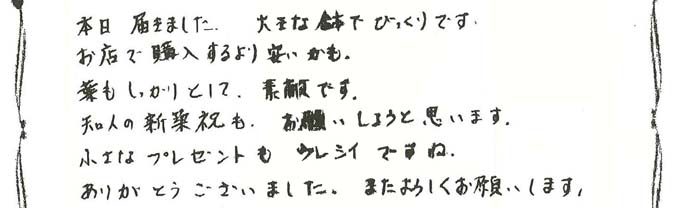 本日 届きました. 大きな鉢で びっくりです.
お店で 購入するより 安いかも.
葉もしっかりとして、素敵です.
知人の新築祝も. お願いしようと思います.
小さな プレゼントも ウレシイ ですね.
ありがとうございました. またよろしくお願いします.